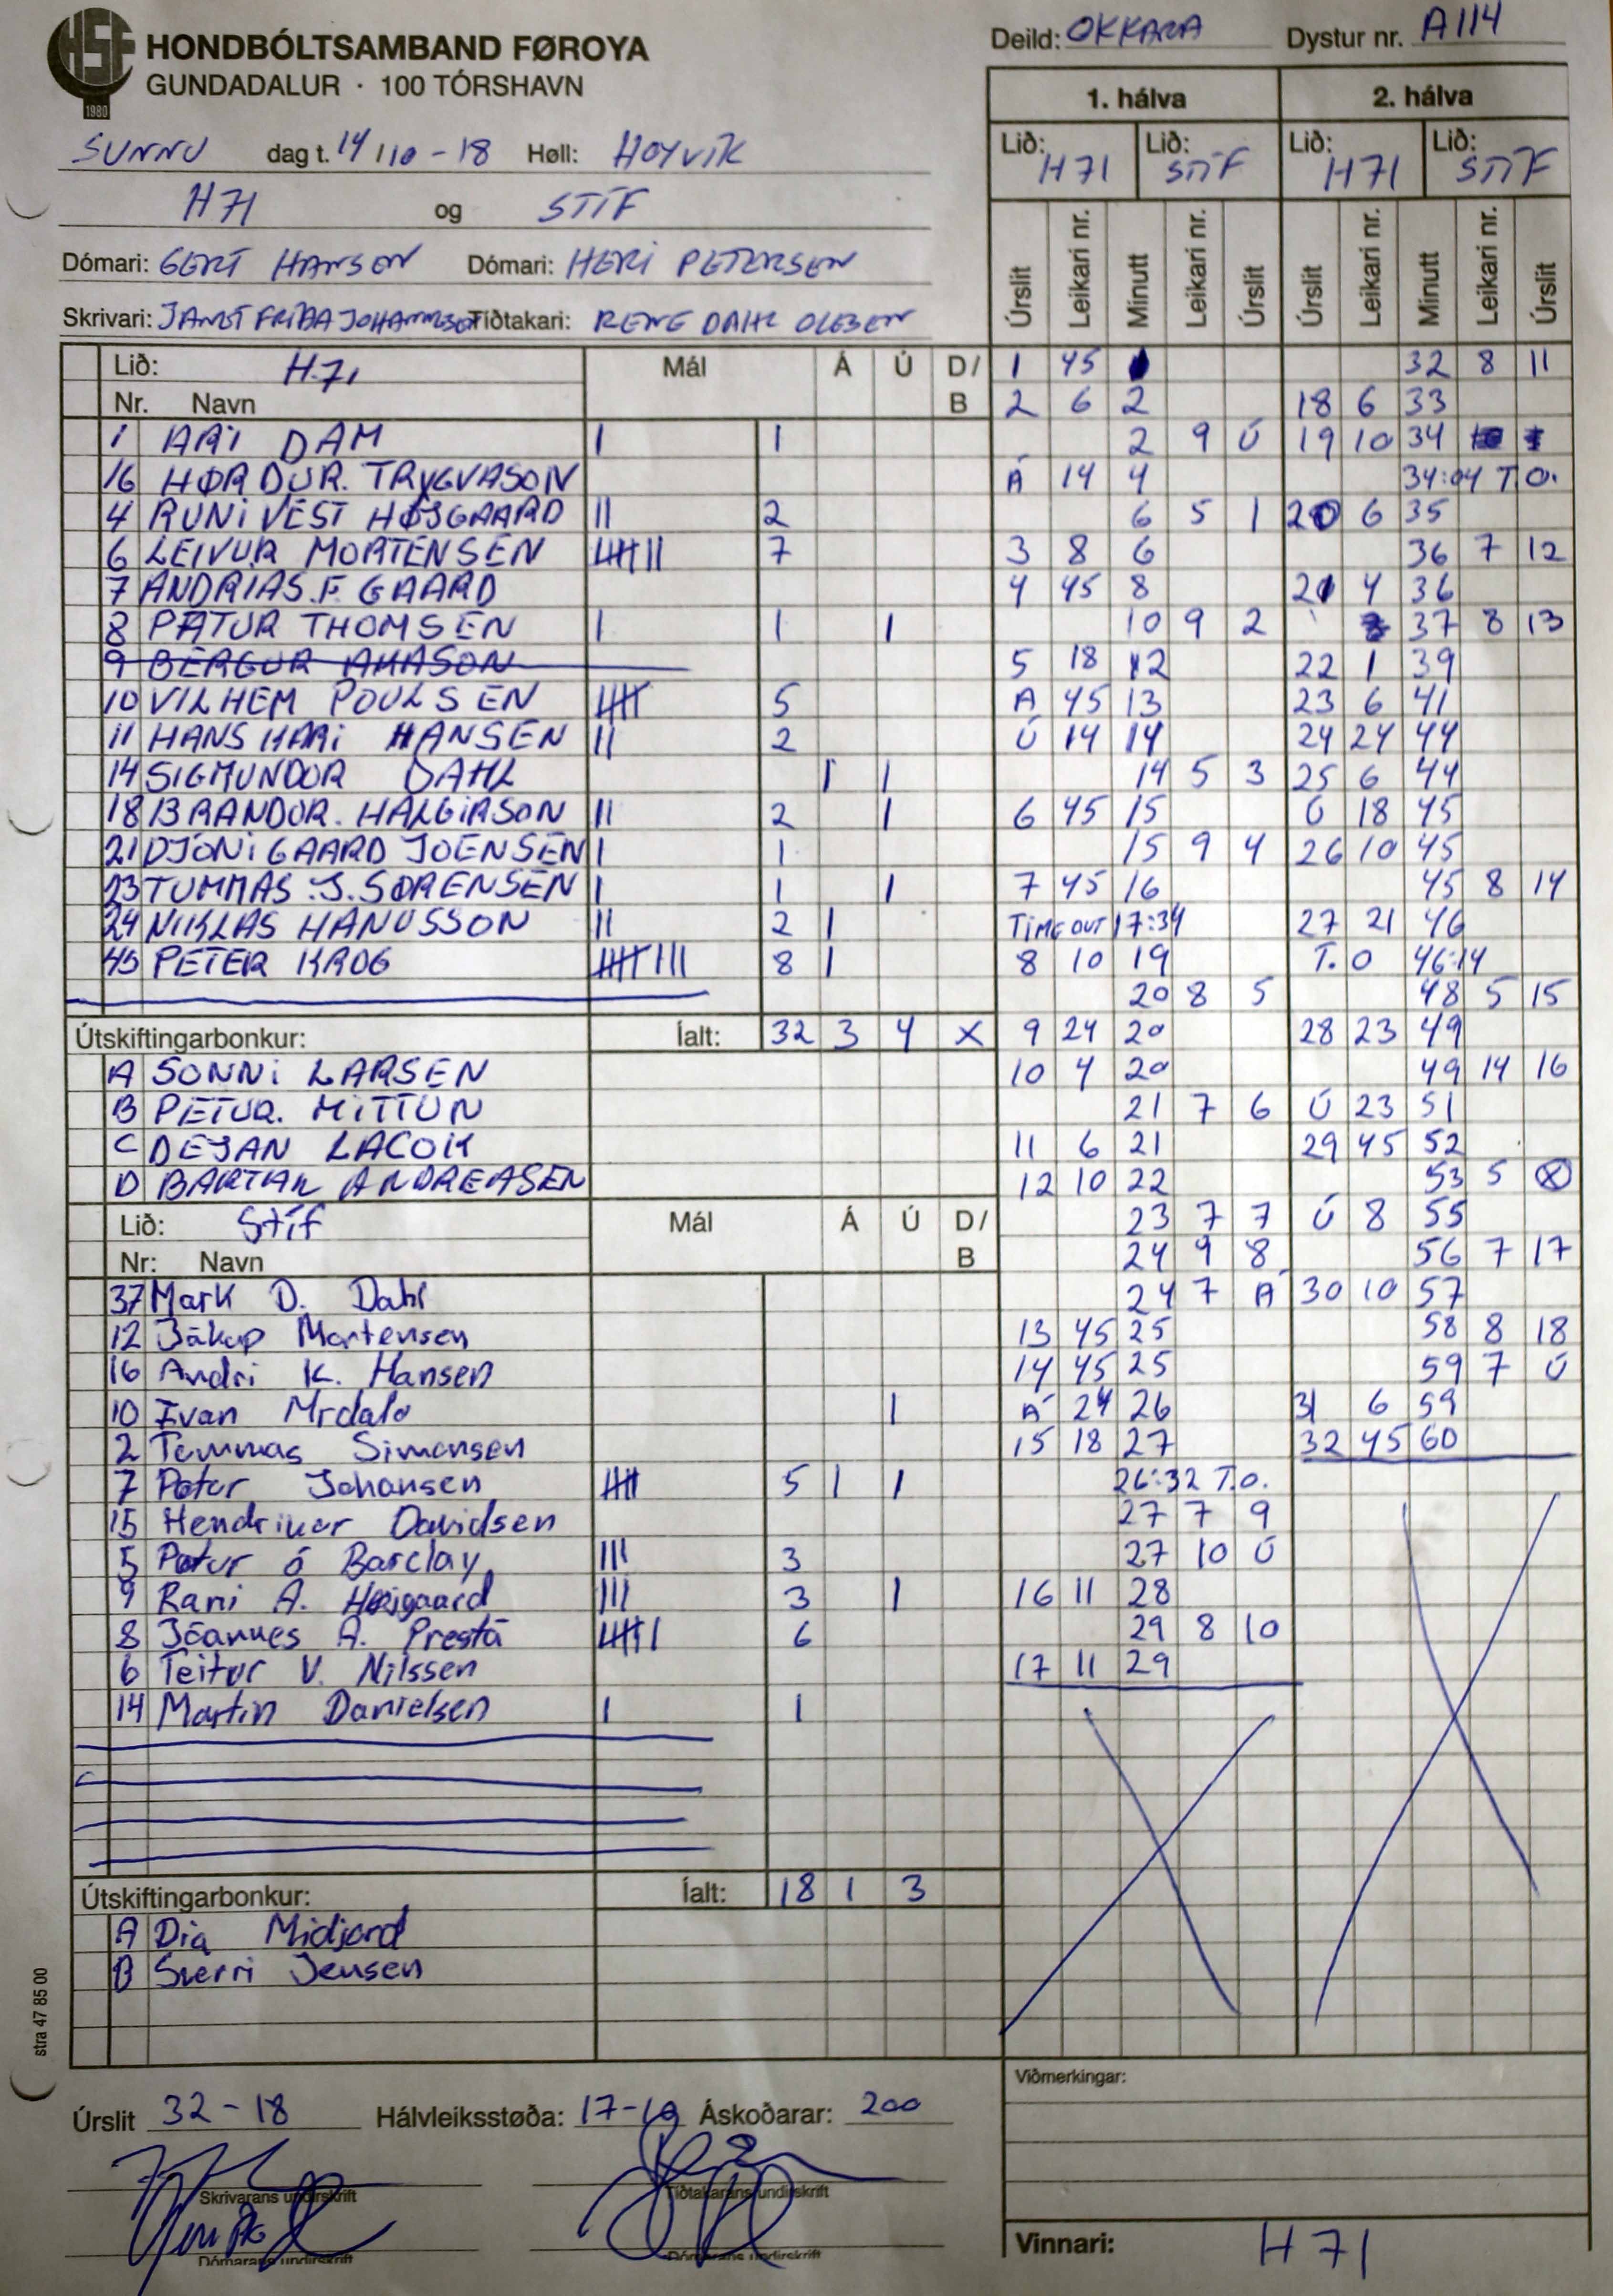 HSF
1980
HONDBÓLTSAMBAND FØROYA
GUNDADALUR · 100 TÓRSHAVN
Deild: OKKARA Dystur nr. A114
SUNNU dag t. 14/10-18 Høll: HOYVÍK
H71 og STÍF
Dómari: GERT HANSEN Dómari: HERI PETERSEN
Skrivari: Tíðtakari: RENE DAHL OLESEN
1. hálva 2. hálva
Lið: H71 Lið: STÍF Lið: H71 Lið: STÍF
Úrslit Leikari nr. Minutt Leikari nr. Úrslit Úrslit Leikari nr. Minutt Leikari nr. Úrslit
Lið: H.71 Mál Á Ú D/
Nr. Navn B
1 ARI DAM I 1
16 HØRDUR. TRYGVASON
4 RUNI VEST HØJGAARD II 2
6 LEIVUR MORTENSEN IIIII II 7
7 ANDRIAS.F. GAARD
8 PÆTUR THOMSEN I 1 1
9 BERGUR
10 VILHEM POULSEN IIIII 5
11 HANS KARI HANSEN II 2
14 SIGMUNDOR DAHL 1 1
18 BRANDOR. HALGIRSON II 2 1
21 DJÓNI GAARD JOENSEN I 1
23 TUMMAS .J. SØRENSEN I 1 1
24 NIKLAS HANUSSON II 2 1
45 PETER KROG IIIII III 8 1
Útskiftingarbonkur: Íalt: 32 3 4 X
A SONNI LARSEN
B PETUR. MITTUN
C DEJAN LACOK
D BARTAL ANDREASEN
Lið: Stíf Mál Á Ú D/
Nr: Navn B
37 Mark D. Dahl
12 Jákup Mortensen
16 Andri K. Hansen
10 Ivan Mrdalo 1
2 Tummas Simonsen
7 Pætur Johansen IIIII 5 1 1
15 Hendrikur Davidsen
5 Pætur ó Barclay III 3
9 Rani A. Højgaard III 3 1
8 Jóannes A. Prestá IIIII I 6
6 Teitur V. Nilssen
14 Martin Danielsen I 1
Útskiftingarbonkur: Íalt: 18 1 3
A Dia Midjord
B Sverri Jensen
1 45
2 6 2
2 9 Ú
Á 14 4
6 5 1
3 8 6
4 45 8
10 9 2
5 18 12
Á 45 13
Ú 14 14
14 5 3
6 45 15
15 9 4
7 45 16
TIME OUT 17:34
8 10 19
20 8 5
9 24 20
10 4 20
21 7 6
11 6 21
12 10 22
23 7 7
24 9 8
24 7 Á
13 45 25
14 45 25
Á 24 26
15 18 27
26:32 T.O.
27 7 9
27 10 Ú
16 11 28
29 8 10
17 11 29
32 8 11
18 6 33
19 10 34
34:04 T.O.
20 6 35
36 7 12
21 4 36
37 8 13
22 1 39
23 6 41
24 24 44
25 6 44
Ú 18 45
26 10 45
45 8 14
27 21 46
T.O 46:14
48 5 15
28 23 49
49 14 16
Ú 23 51
29 45 52
53 5 X
Ú 8 55
56 7 17
30 10 57
58 8 18
59 7 Ú
31 6 59
32 45 60
stra 47 85 00
Úrslit 32-18 Hálvleiksstøða: 17-10 Áskoðarar: 200
Skrivarans undirskrift Tíðtakarans undirskrift
Dómarans undirskrift Dómarans undirskrift
Viðmerkingar:
Vinnari: H71